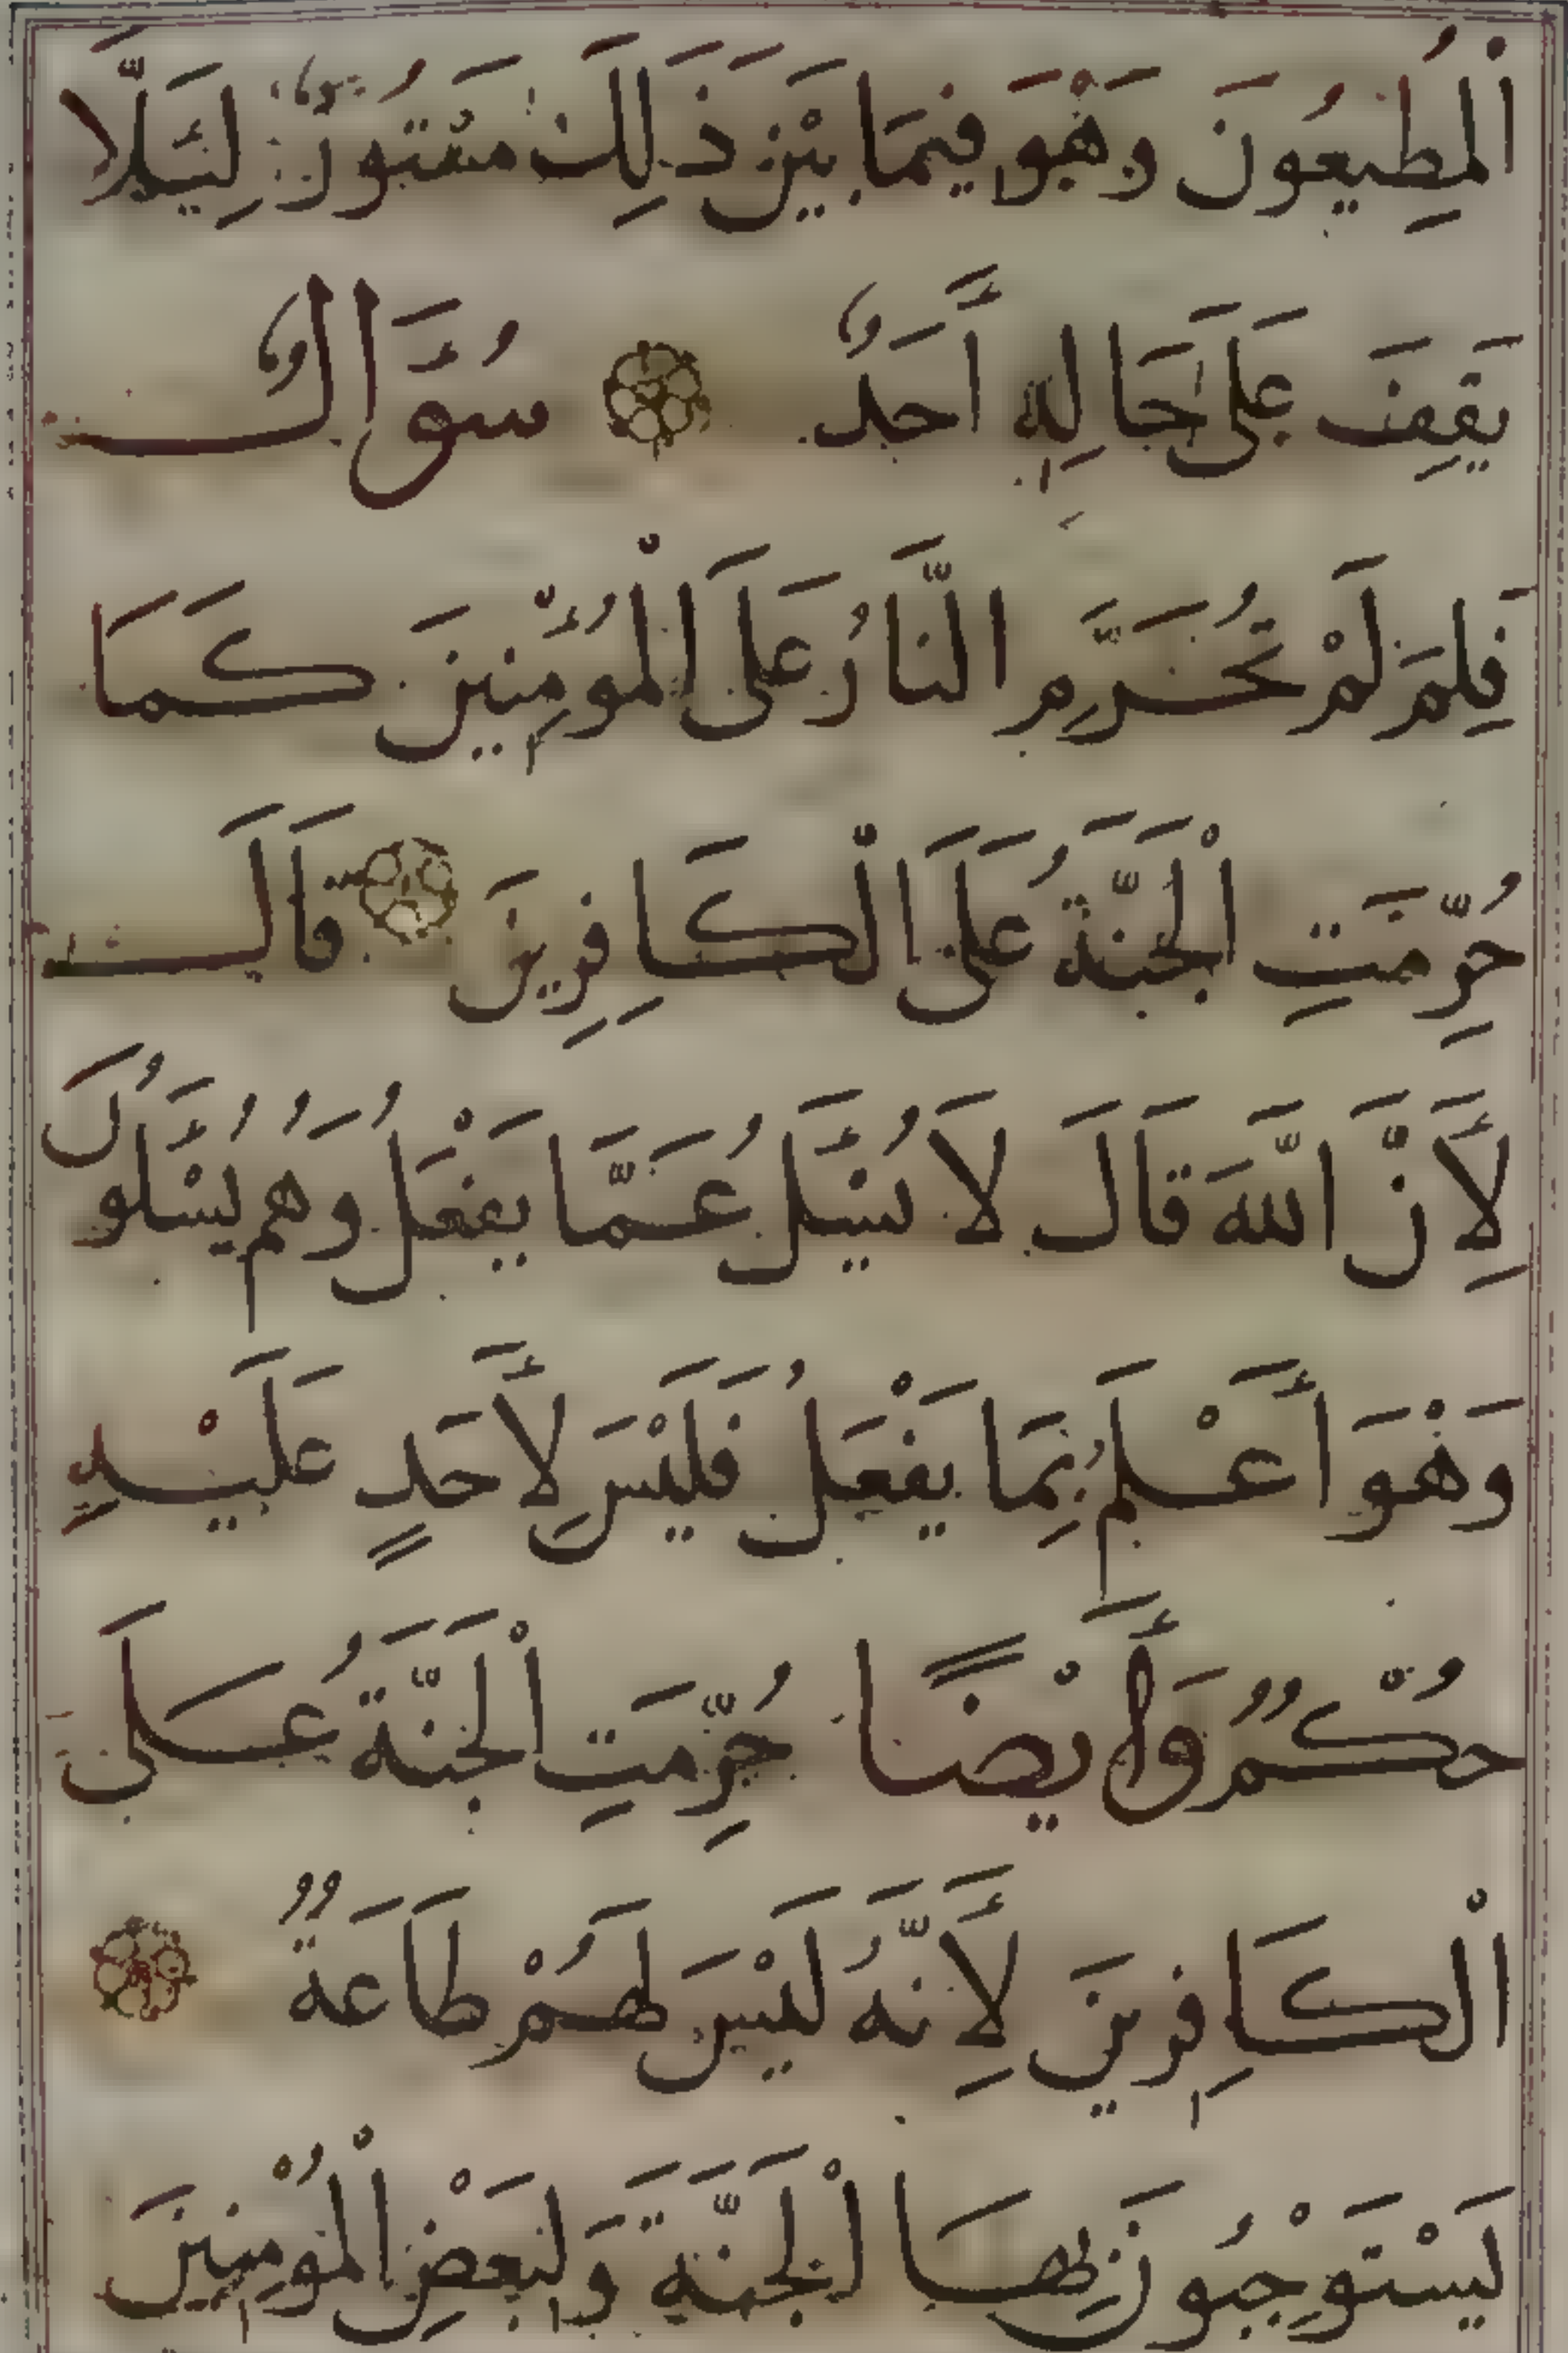 اْلمُطِيعُونَ وَهْوَ فِيمَا بَيْنَ ذَلِكَ مَسْتُورٌ لِئَلَّا
يَقِفَ عَلَى حَالِهِ أَحَدٌ سُؤَالٌ
فَلِمَ لَمْ تُحَرَّمِ النَّارُ عَلَى اْلمُؤْمِنِينَ كَمَا
حُرِّمَتِ اْلجَنَّةُ عَلَى اْلكَافِرِينَ قَالَ
لِأَنَّ اللَّهَ قَالَ لَا يُسْئَلُ عَمَّا يَفْعَلُ وَهُمْ يُسْئَلُونَ
وَهْوَ أَعْلَمُ بِمَا يَفْعَلُ فَلَيْسَ لِأَحَدٍ عَلَيْهِ
حُكْمٌ وَأَيْضًا حُرِّمَتِ اْلجَنَّةُ عَلَى
اْلكَافِرِينَ لِأَنَّهُ لَيْسَ لَهُمْ طَاعَةٌ
يَسْتَوْجِبُونَ بِهَا اْلجَنَّةَ وَلِبَعْضِ اْلمُؤْمِنِينَ